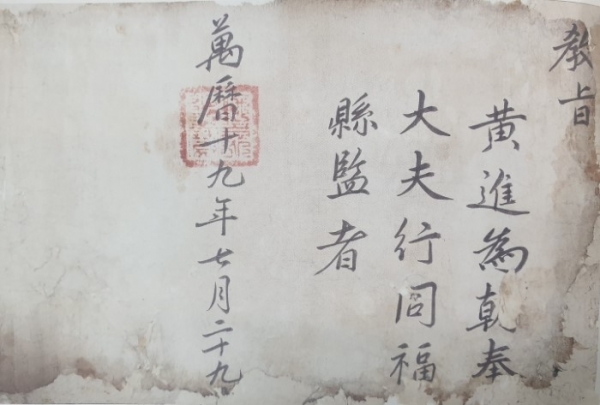 教旨
黃進為朝奉
大夫行同福
縣監者
萬曆十九年七月二十九